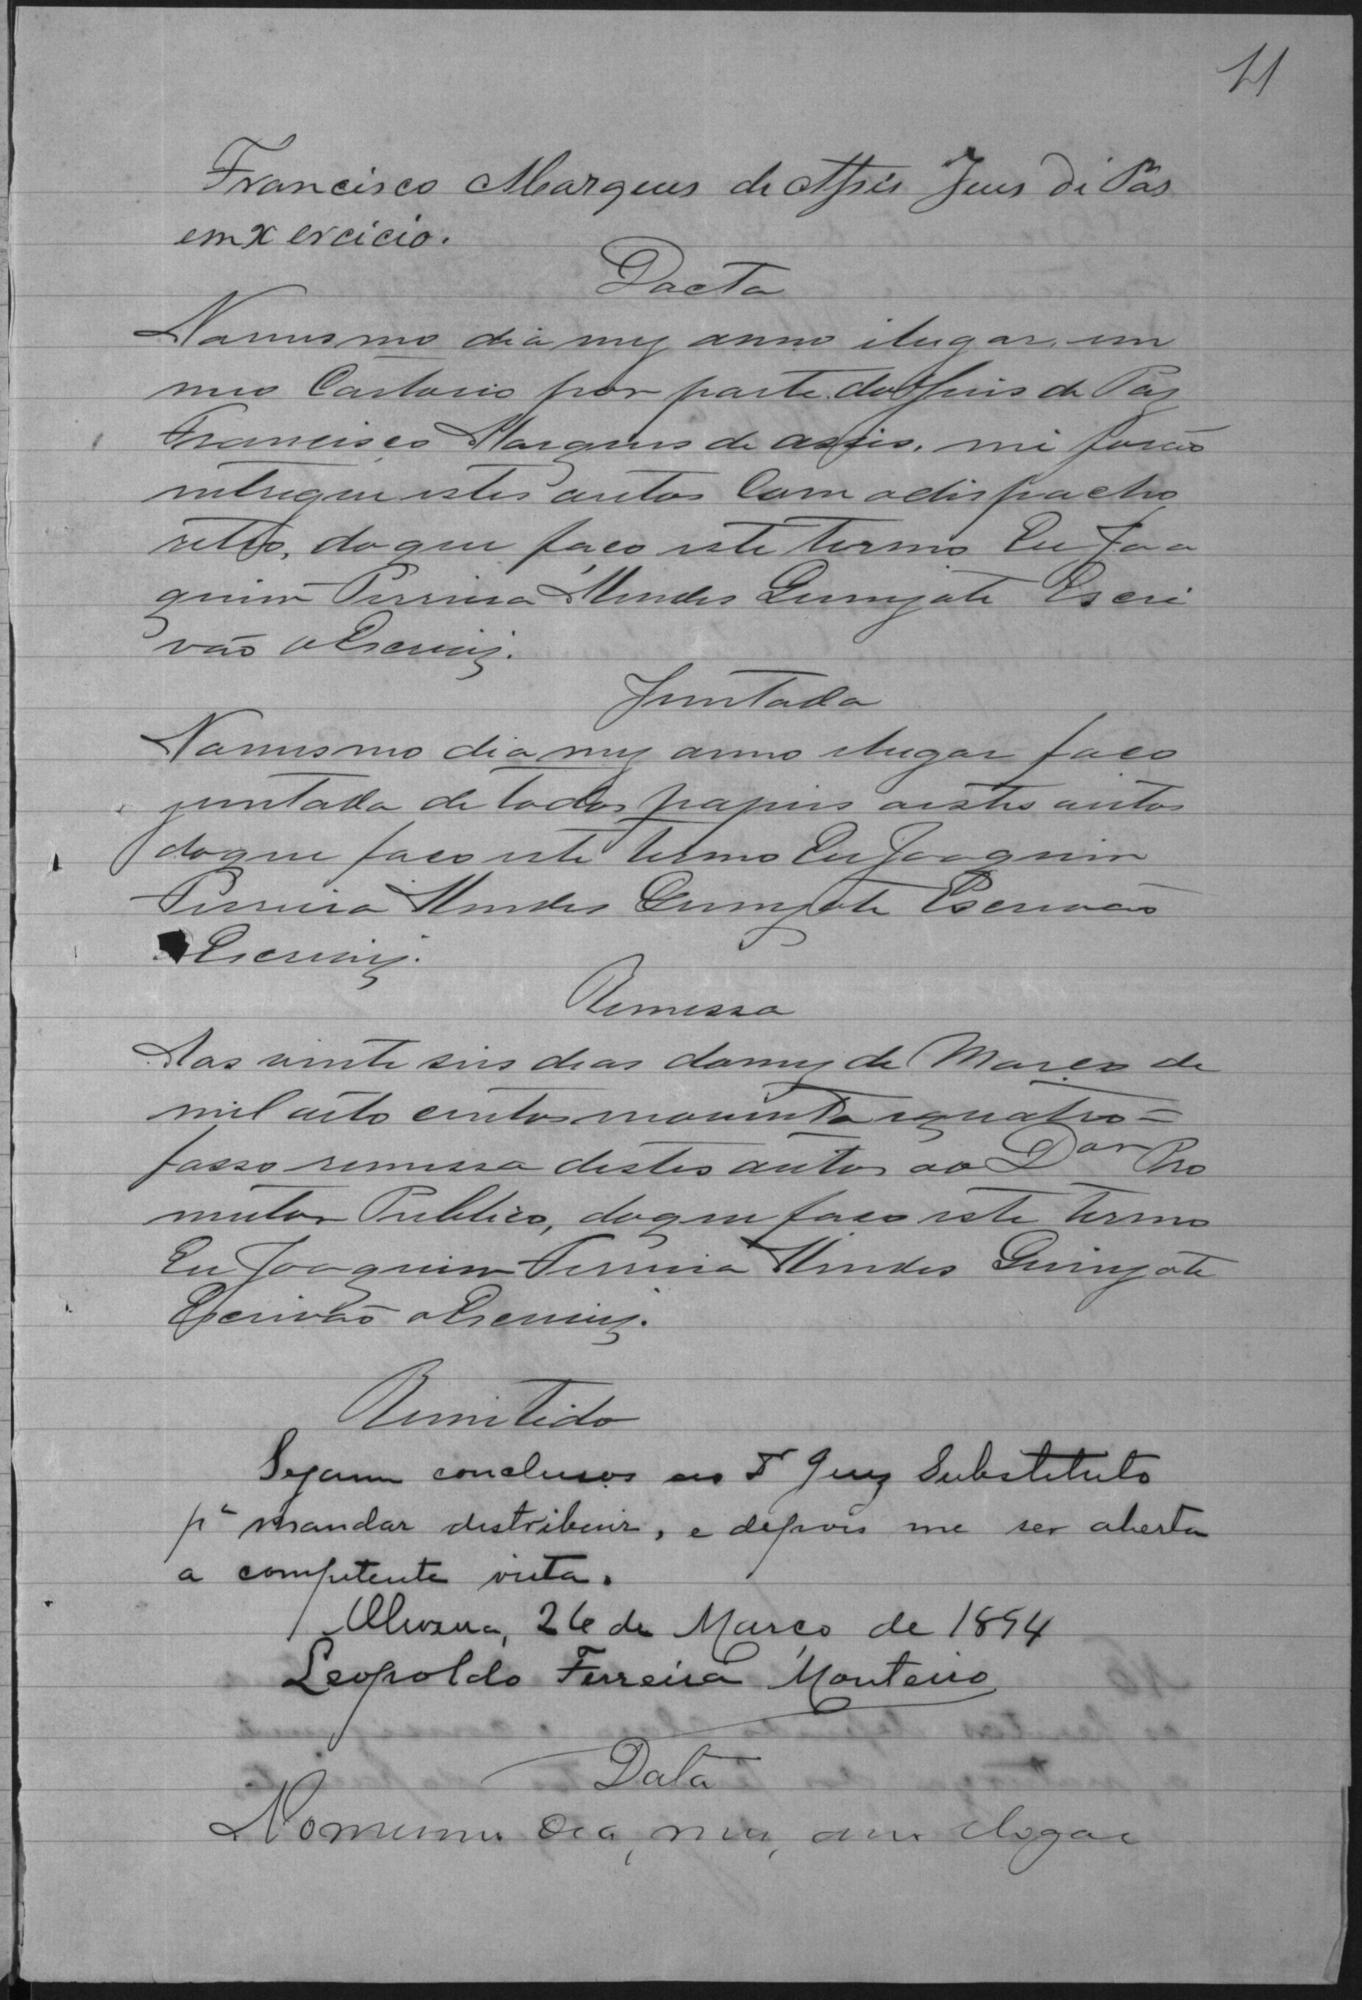 11
Francisco Marques de Assis Juis di Pas
em x ercicio.
Dacta
Nomesmo dia mez anno ilugar, em
meo Cartorio por parte do Juis de Paz
Francisco Marques de assis, mi forão
entregue estes autos Com o dispacho
retro, doque faço este termo Eu Joa
quim Perreira Mendes Escri
vão o Escrivij.
Juntada
Nomesmo dia mez anno ilugar faço
juntada de todos papeis aestes autos
doque faço este termo Eu Joaquim
Perreira Mendes Escrivão
o Escrivij.
Remessa
Aos vinte seis dias domez de Março de
mil oito centos noventa equatro =
fasso remessa destes autos ao Dor Pro
mutor Publico, doque faço este termo
Eu Joaquim Perreira Mendes
Escrivão o Escrivij.
Remitido
Sejam conclusos ao Dr Juiz Substituto
pa mandar distribuir, e depois me ser aberta
a competente vista.
Oliveira, 26 de Março de 1894
Leopoldo Ferreira Monteiro
Data
Nomesmo dia, mez, anno elogar